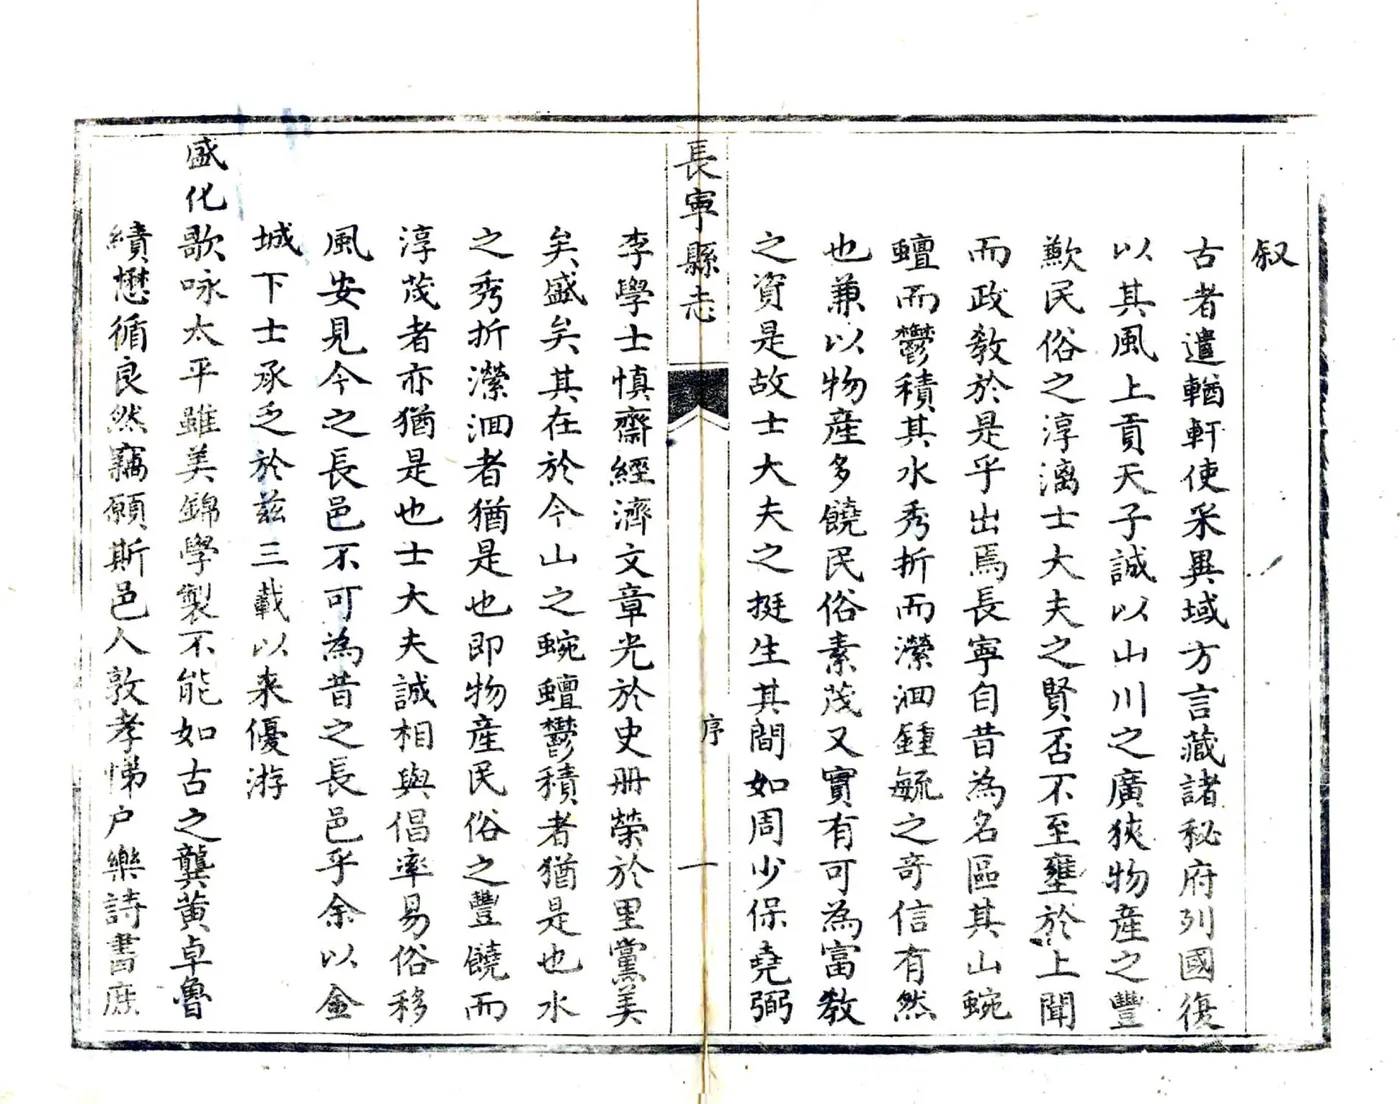 叙
古者遣輶軒使采異域方言藏諸秘府列國復
以其風上貢天子誠以山川之廣狹物產之豐
歉民俗之淳漓士大夫之賢否不至壅於上聞
而政教於是乎出焉長寧自昔為名區其山蜿
蟺而鬱積其水秀折而瀠洄鍾毓之奇信有然
也兼以物產多饒民俗素茂又實有可為富教
之資是故士大夫之挺生其間如周少保堯弼
長寧縣志
序
一
李學士慎齋經濟文章光於史册榮於里黨美
矣盛矣其在於今山之蜿蟺鬱積者猶是也水
之秀折瀠洄者猶是也即物產民俗之豐饒而
淳茂者亦猶是也士大夫誠相與倡率易俗移
風安見今之長邑不可為昔之長邑乎余以金
城下士承乏於茲三載以来優游
盛化歌咏太平雖美錦學製不能如古之龔黄卓魯
績懋循良然竊願斯邑人敦孝悌户樂詩書庶